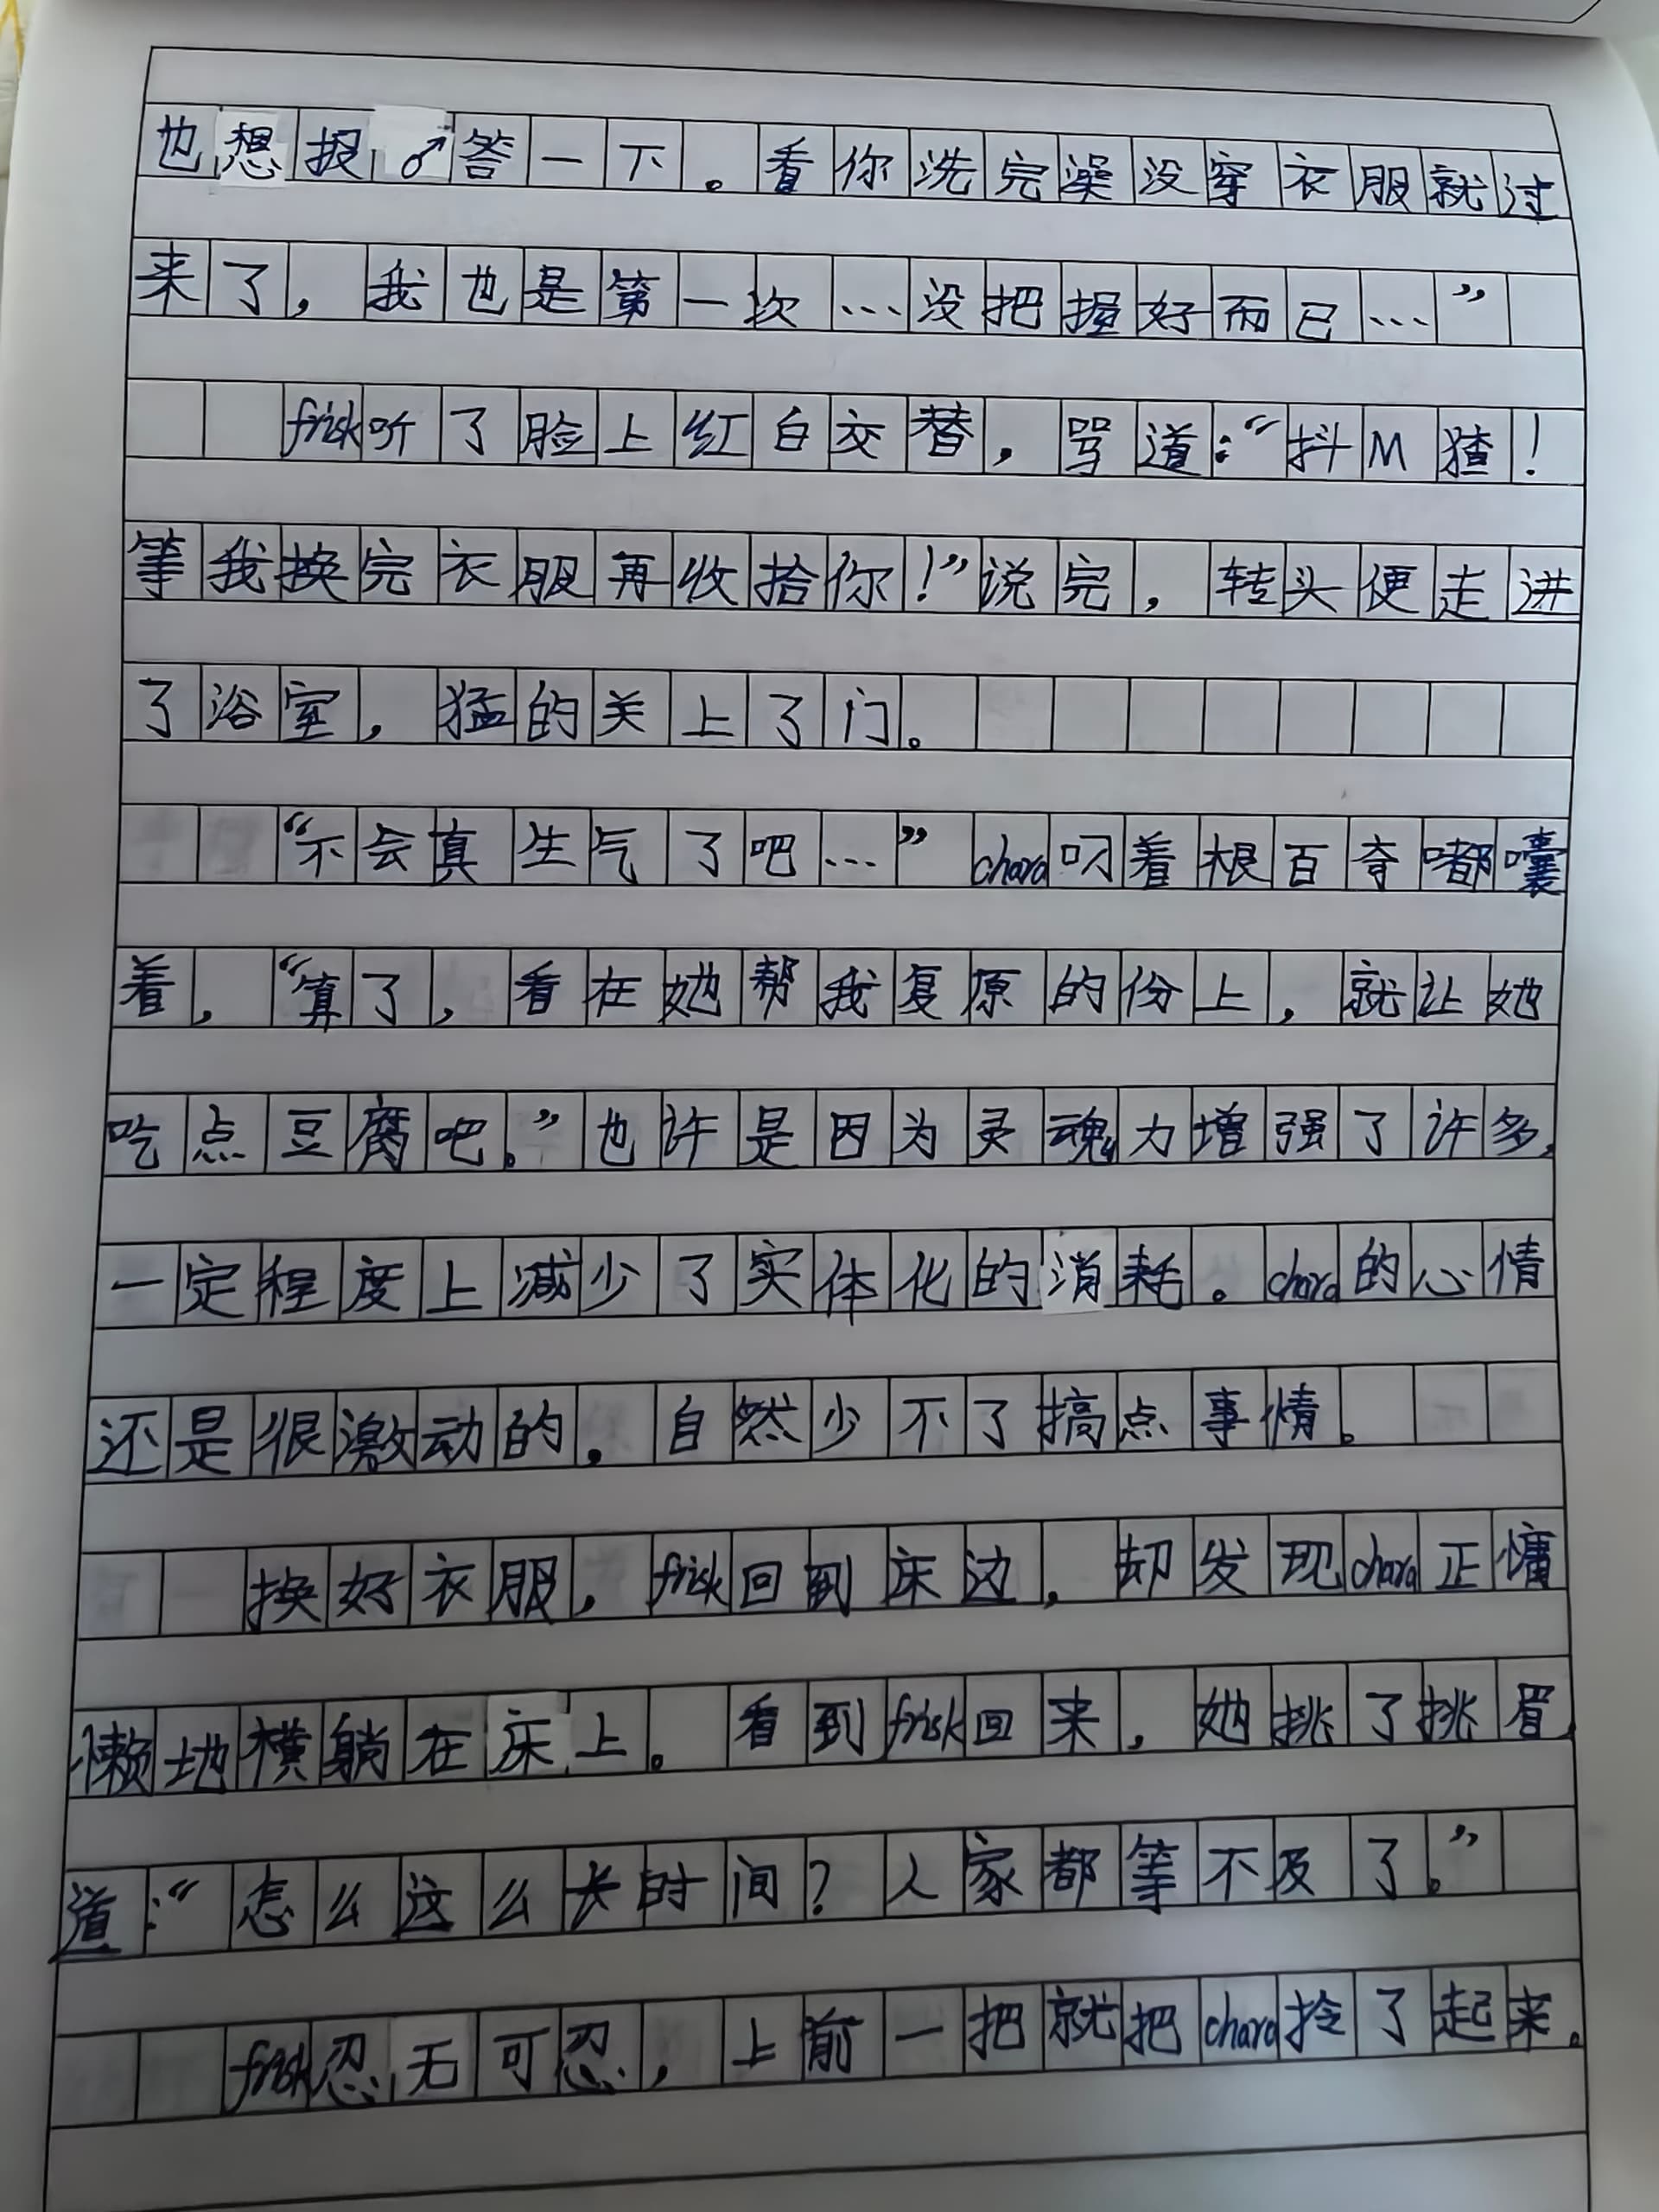 也想报♂答一下。看你洗完澡没穿衣服就过
来了，我也是第一次…没把握好而已…”
frisk听了脸上红白交替，骂道：“抖M猹！
等我换完衣服再收拾你！”说完，转头便走进
了浴室，猛的关上了门。
“不会真生气了吧…”chara叼着根百奇嘟囔
着，“算了，看在她帮我复原的份上，就让她
吃点豆腐吧。”也许是因为灵魂力增强了许多，
一定程度上减少了实体化的消耗。chara的心情
还是很激动的。自然少不了搞点事情。
换好衣服，frisk回到床边，却发现chara正慵
懒地横躺在床上。看到frisk回来，她挑了挑眉，
道：“怎么这么长时间？人家都等不及了。”
frisk忍无可忍，上前一把就把chara拎了起来。